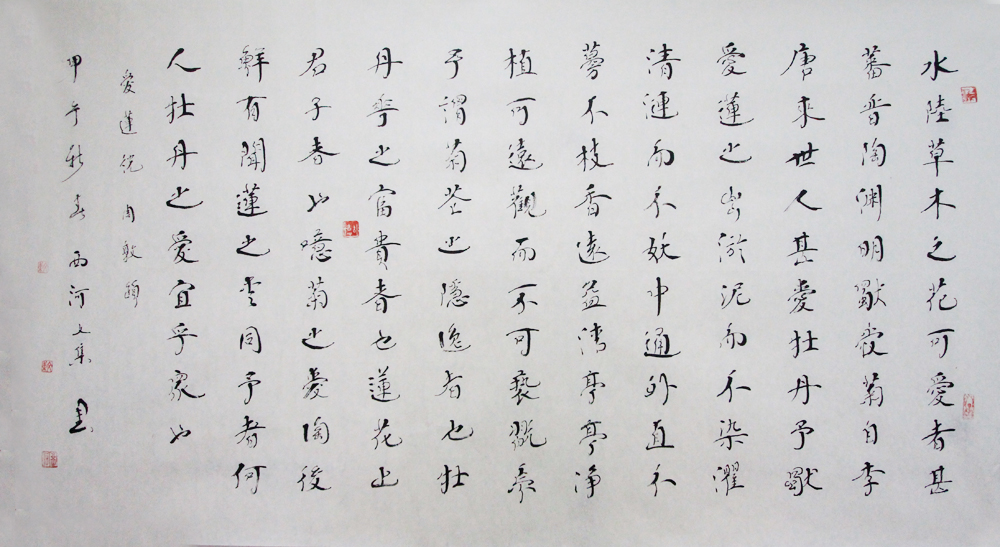 水陸草木之花可愛者甚
蕃晉陶渊明獨愛菊自李
唐來世人甚愛牡丹予獨
愛蓮之出淤泥而不染濯
清漣而不妖中通外直不
蔓不枝香遠益清亭亭净
植可遠觀而不可褻翫焉
予謂菊花之隱逸者也牡
丹花之富貴者也蓮花之
君子者也噫菊之愛陶後
鮮有聞蓮之愛同予者何
人牡丹之愛宜乎衆也
愛蓮說 周敦頤
甲午新春 西河文集 書